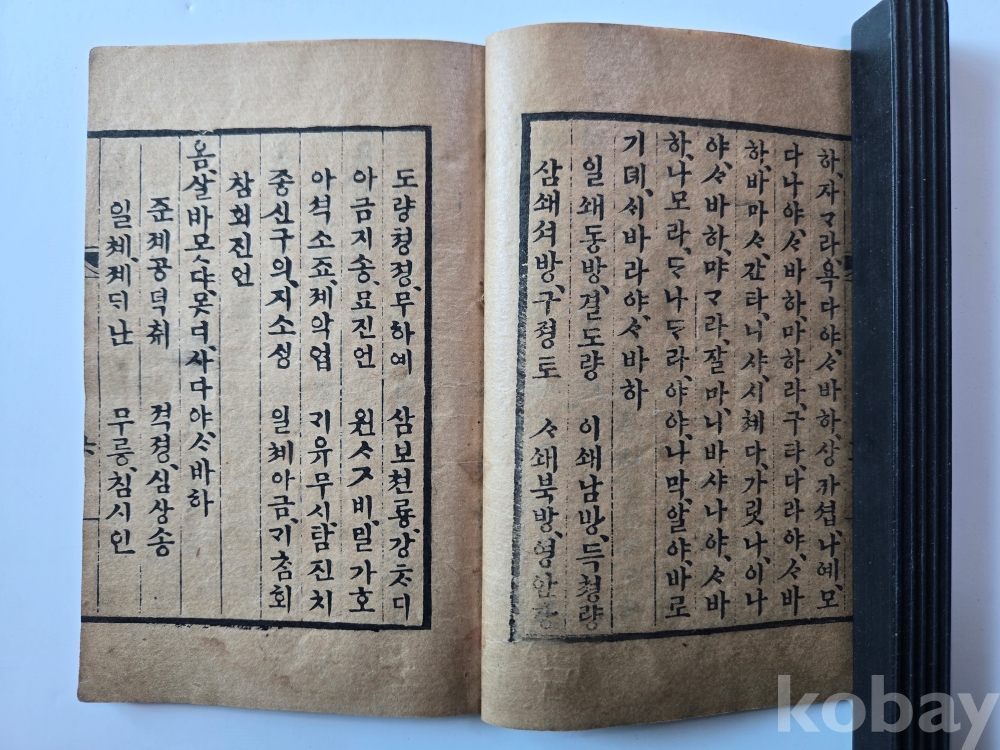 하、자ᄆᆞ라、욕다야、ᄉᆞ바하、상카셥、나예、모
다나야、ᄉᆞ바하、마하라、구타、다라야、ᄉᆞ바
하、바마ᄉᆞ、간타、니샤、시쳬다、가릿나、이나
야、ᄉᆞ바하、먀ᄀᆞ라、잘마、니바샤나야、ᄉᆞ바
하、나모라、ᄃᆞ나ᄃᆞ라야、야、나막、알야、바로
기뎨、ᄉᆡ바라야、ᄉᆞ바하
일쇄동방、결도량 이쇄남방、득쳥량
삼쇄셔방、구졍토 ᄉᆞ쇄북방、영안
도량쳥졍、무하예 삼보쳔룡、강ᄎᆞ디
아금지송、묘진언 원ᄉᆞᄌᆞ비、밀가호
아셕소죠、졔악업 ᄀᆡ유무시、탐진치
죵신구의、지소셩 일쳬아금、ᄀᆡ참회
참회진언
옴、살바모ᄉᆞ댜、못뎌、사다야、ᄉᆞ바하
준졔공덕취 젹졍、심상숑
일쳬、졔ᄃᆡ난 무릉、침시인
kobay